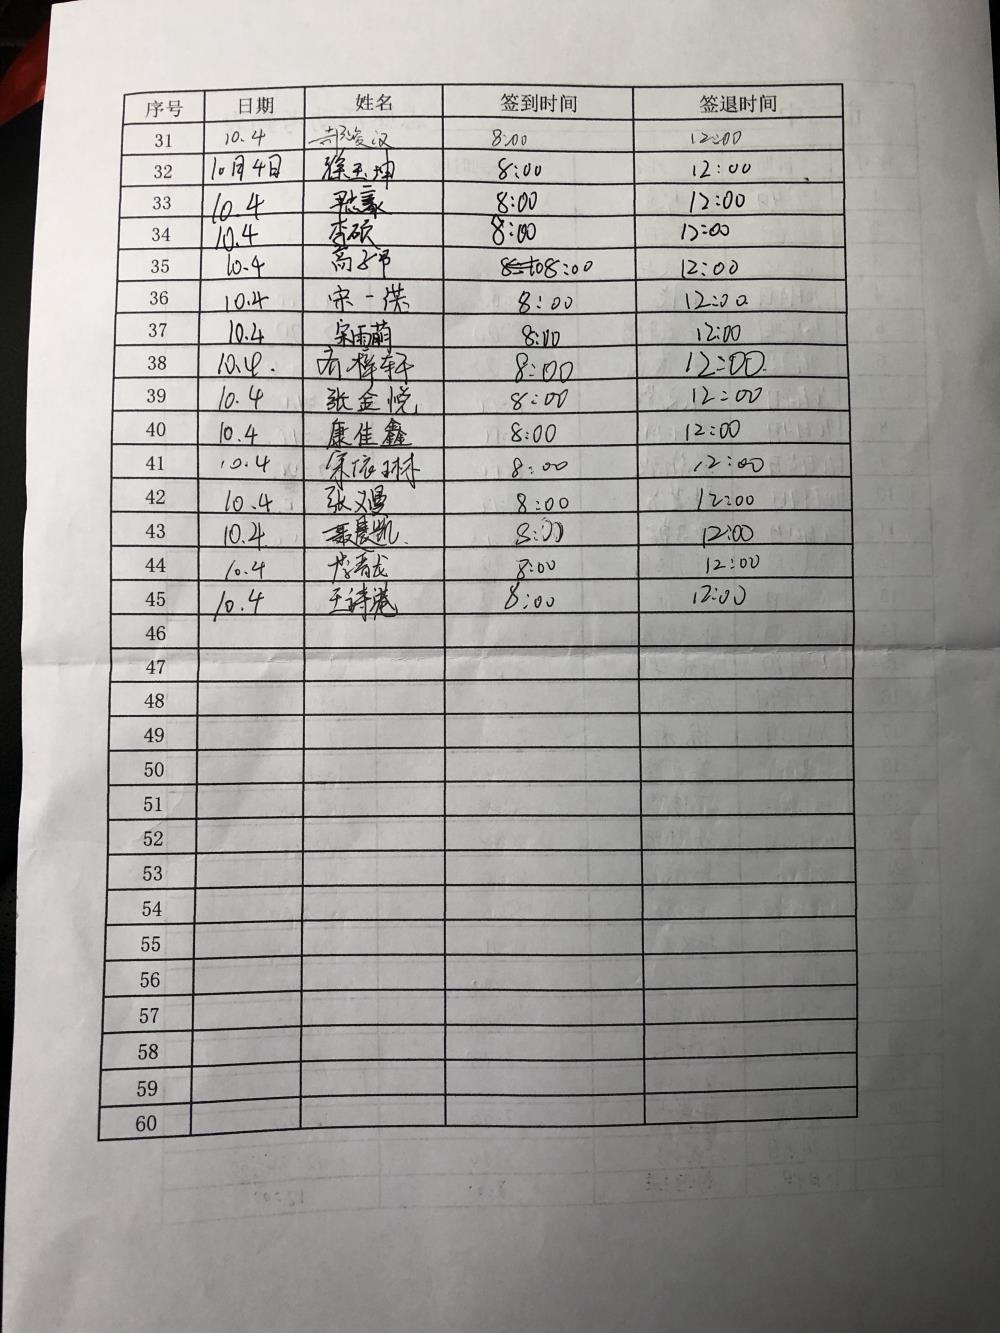 序号 日期 姓名 签到时间 签退时间
31 10.4 8:00 12:00
32 10月4日 徐玉坤 8:00 12:00
33 10.4 8:00 12:00
34 10.4 李硕 8:00 12:00
35 10.4 高子 8:00 12:00
36 10.4 宋一洪 8:00 12:00
37 10.4 宋雨萌 8:00 12:00
38 10.4. 梓轩 8:00 12:00.
39 10.4 张金悦 8:00 12:00
40 10.4 康佳鑫 8:00 12:00
41 10.4 宋依琳 8:00 12:00
42 10.4 张义曼 8:00 12:00
43 10.4. 聂晨凯. 8:00 12:00
44 10.4 李青龙 8:00 12:00
45 10.4 王诗 8:00 12:00
46
47
48
49
50
51
52
53
54
55
56
57
58
59
60